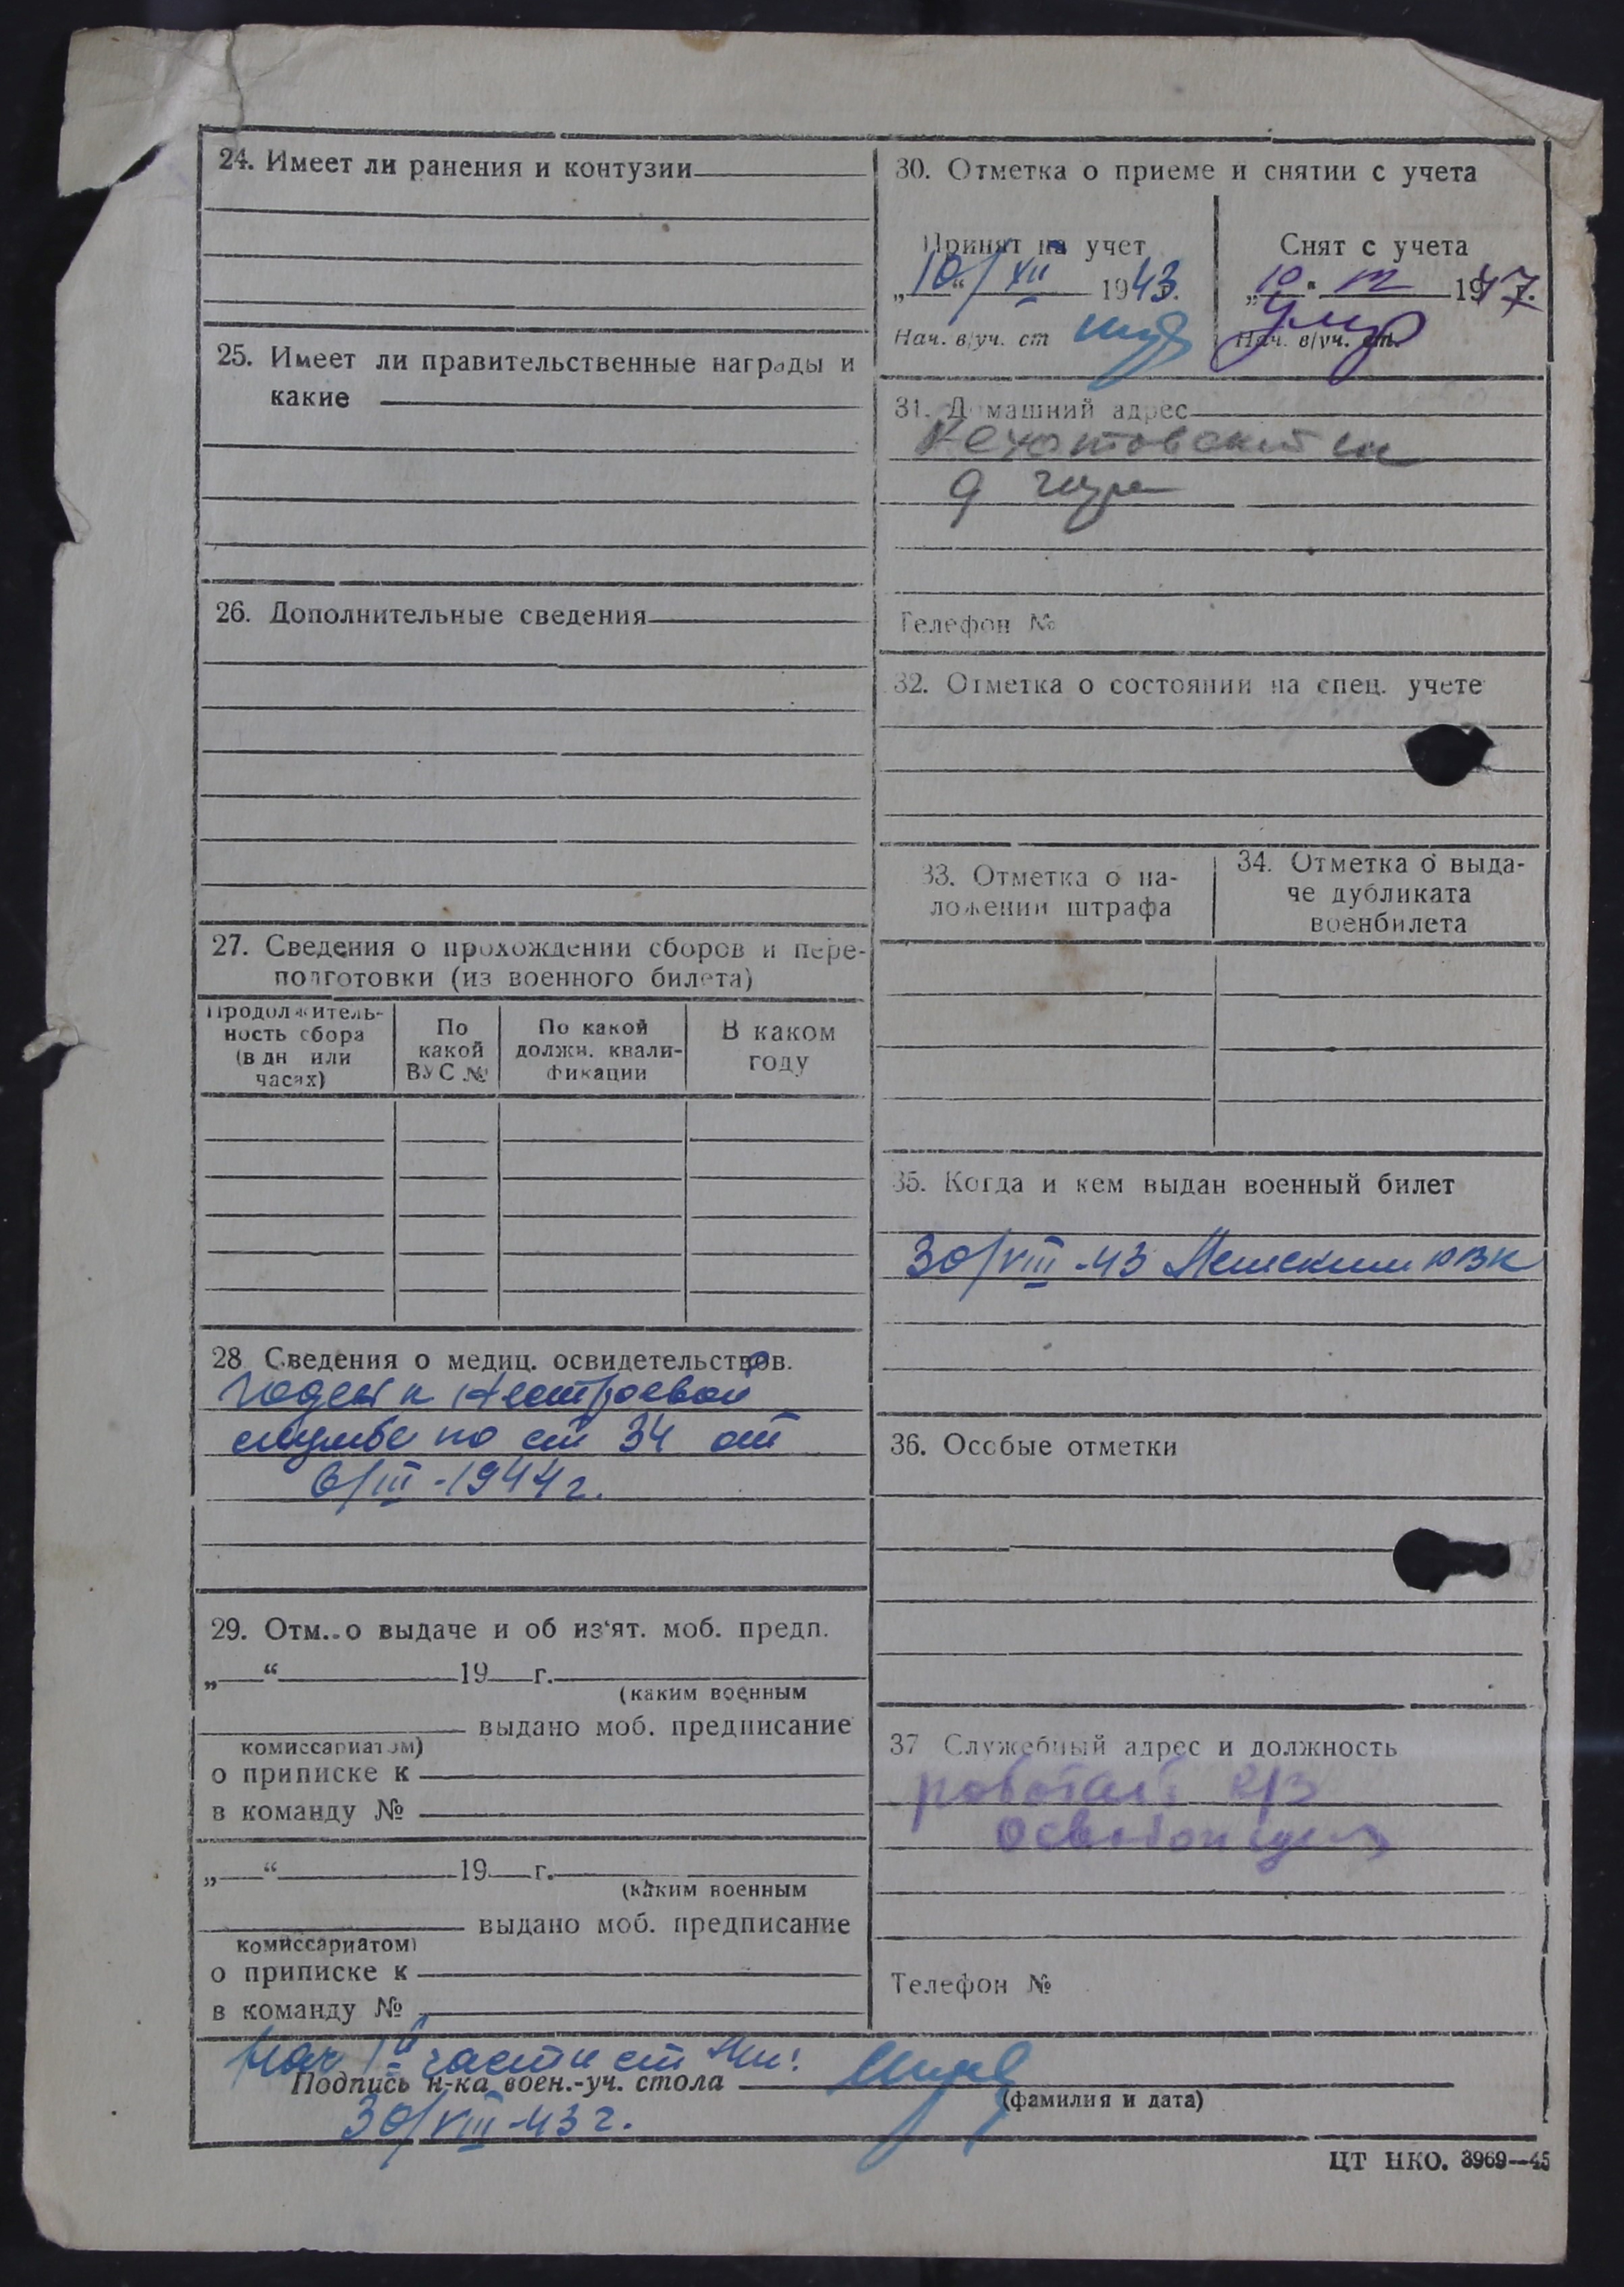 24. Имеет ли ранения и контузии
25. Имеет ли правительственные награды и
какие
26. Дополнительные сведения
27. Сведения о прохождении сборов и пере-
подготовки (из военного билета)
Продолжитель-
ность сбора
(в дн или
часах)
По
какой
ВУС №
По какой
должн. квали-
фикации
В каком
году
28 Сведения о медиц. освидетельствов.
Годен к нестроевой
службе по ст 34 от
6/III - 1944 г.
29. Отм. о выдаче и об из'ят. моб. предп.
„ “ 19 г.
(каким военным
выдано моб. предписание
комиссариатом)
о приписке к
в команду №
„ “ 19 г.
(каким военным
выдано моб. предписание
комиссариатом)
о приписке к
в команду №
30. Отметка о приеме и снятии с учета
Принят на учет
„10“/XII 1943.
Нач. в/уч. ст
Снят с учета
„10“ 1947.
умер
Нач. в/уч. ст.
31. Домашний адрес
Телефон №
32. Отметка о состоянии на спец. учете
33. Отметка о на-
ложении штрафа
34. Отметка о выда-
че дубликата
военбилета
35. Когда и кем выдан военный билет
30/VIII-43
36. Особые отметки
37 Служебный адрес и должность
Телефон №
Нач 1й части ст
Подпись н-ка воен.-уч. стола
(фамилия и дата)
30/VIII-43 г.
ЦТ НКО. 3969—45